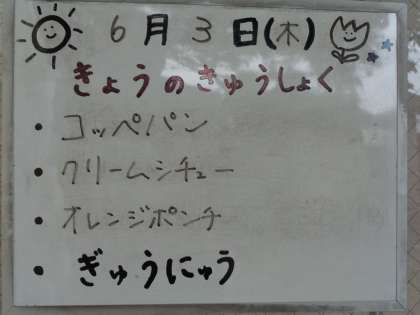 6月3日(木)
きょうのきゅうしょく
• コッペパン
• クリームシチュー
• オレンジポンチ
• ぎゅうにゅう